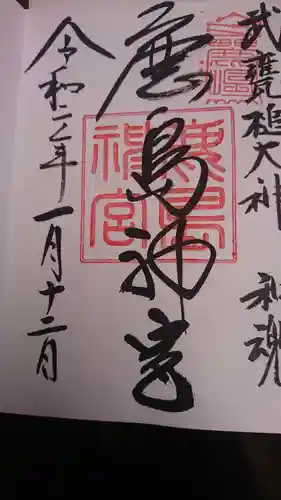 武甕槌大神 和魂
鹿島神宮
鹿島神宮
令和三年一月十二日